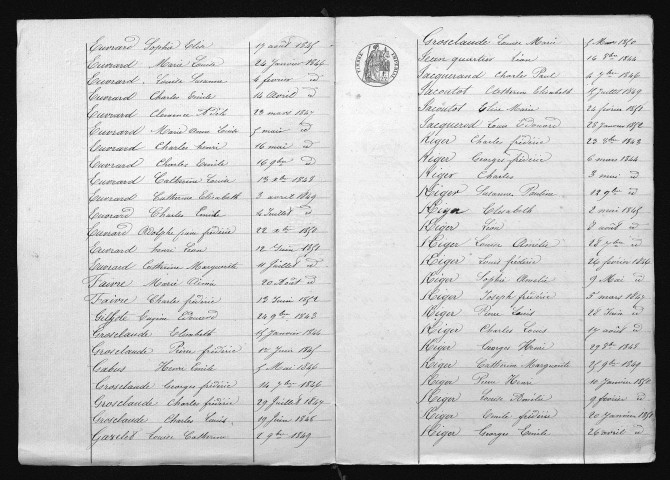 Euvrard Sophie Elise 17 août 1845
Euvrard Marie Louise 24 Janvier 1846
Euvrard Louise Susanne 4 février id
Euvrard Charles Emile 14 Avril id
Euvrard Clémence Adèle 23 mars 1847
Euvrard Marie Anne Louise 5 mai id
Euvrard Charles henri 16 mai id
Euvrard Charles Emile 16 9bre id
Euvrard Catherine Louise 13 Xbre 1848
Euvrard Catherine Elisabeth 3 avril 1849
Euvrard Charles Emile Juillet id
Euvrard Adolphe frédéric 22 Xbre 1850
Euvrard henri Léon 12 Juin 1851
Euvrard Catherine Marguerite 11 Juillet id
Faivre Marie 20 Août id
Faivre Charles frédéric 13 Juin 1852
Eugène Edouard 24 9bre 1843
Grosclaude Elisabeth 15 Janvier 1844
Grosclaude Pierre frédéric 12 Juin 1845
Henri Emile 5 Mai 1846
Grosclaude Georges frédéric 14 7bre 1846
Grosclaude Charles frédéric 29 Juillet 1847
Grosclaude Charles Louis 19 Juin 1848
Louise Catherine 2 9bre 1849
Grosclaude Louise Marie 5 Mars 1850
Jean quartier Léon 16 8bre 1844
Jacquerand Charles Paul 4 7bre 1846
Jacoutot Catherine Elisabeth Juillet 1849
Jacoutot Elise Marie 24 février 1851
Jacquerod Louis Edouard 28 Janvier 1852
Kiger Charles frédéric 23 8bre 1843
Kiger Georges frédéric 6 mars 1844
Kiger Charles 3 mai id
Kiger Susanne Pauline 18 9bre id
Kiger Elisabeth 2 mai 1845
Kiger Léon 8 août id
Kiger Louise Amélie 28 7bre id
Kiger Louis frédéric 24 février 1846
Kiger Sophie Amélie 9 Mai id
Kiger Joseph frédéric 5 mars 1847
Kiger Pierre Louis 28 Juin id
Kiger Charles Louis 17 août id
Kiger Georges Henri 29 8bre 1848
Kiger Catherine Marguerite 25 9bre 1849
Kiger Pierre Henri 10 Janvier 1850
Kiger Louise Amélie 9 février id
Kiger Emile frédéric 20 Janvier 1851
Kiger Georges Emile 26 avril id